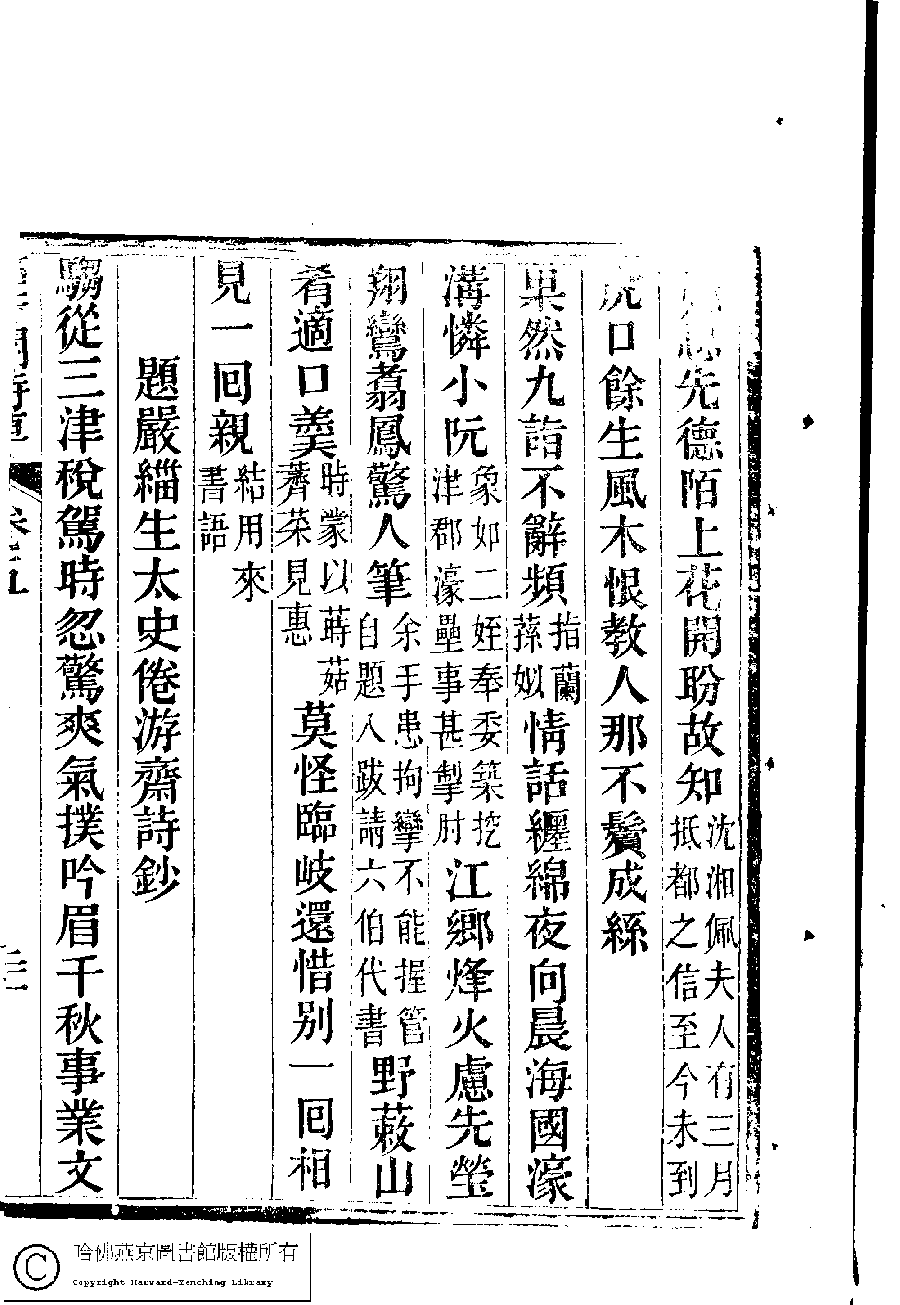 先德陌上花開盼故知沈湘佩夫人有三月抵都之信至今未到
虎口餘生風木恨教人那不鬢成絲
果然九詣不辭頻指蘭蓀姒情話纏綿夜向晨海國濠
溝憐小阮象如二姪奉委築挖津郡濠壘事甚掣肘江鄉烽火慮先塋
翔鸞翥鳳驚人筆余手患拘攣不能握管自題入跋請六伯代書野蔌山
肴適口羹時蒙以蒔菇薺菜見惠莫怪臨岐還惜别一囘相
見一囘親結用來書語
題嚴緇生太史倦游齋詩鈔
騶從三津稅駕時忽驚爽氣撲吟眉千秋事業文
哈佛燕京圖書館版權所有
Copyright Harvard-Yenching Library